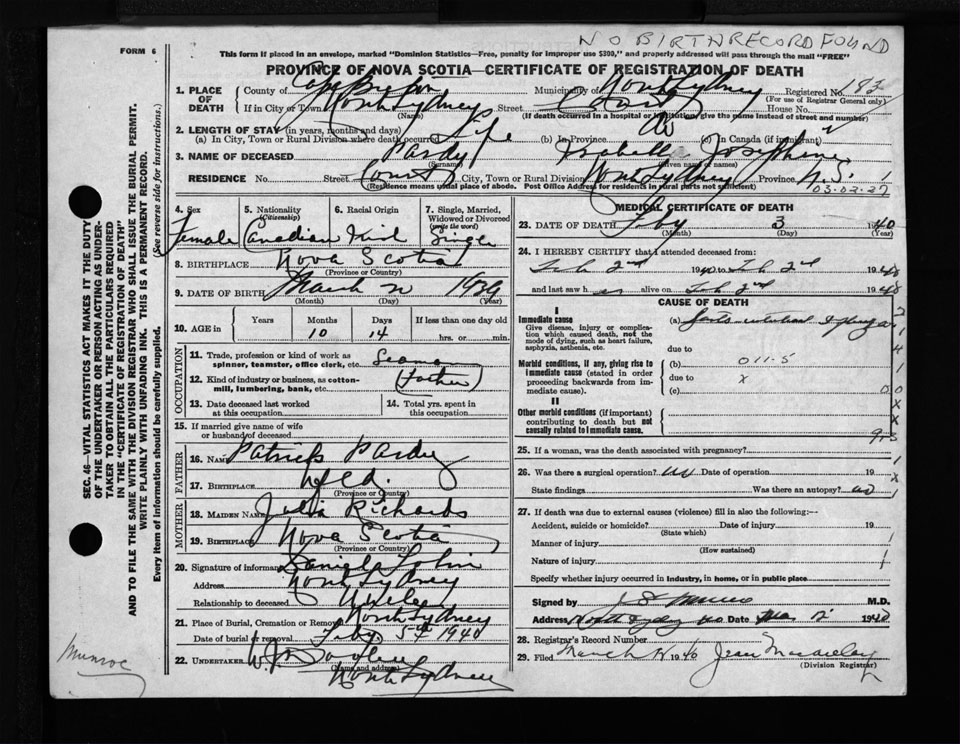 NO BIRTH RECORD FOUND
FORM 6
This form if placed in an envelope, marked "Dominion Statistics—Free, penalty for improper use $300," and properly addressed will pass through the mail "FREE"
PROVINCE OF NOVA SCOTIA—CERTIFICATE OF REGISTRATION OF DEATH
1. PLACE OF DEATH County of Cape Breton Municipality of North Sydney Registered No. 183
(For use of Registrar General only)
If in City or Town North Sydney Street Court House No.
(Name) (If death occurred in a hospital or institution, give the name instead of street and number)
2. LENGTH OF STAY (in years, months and days)
(a) In City, Town or Rural Division where death occurred Life (b) In Province (c) In Canada (if immigrant)
3. NAME OF DECEASED Pardy Isabella Josephine
(Surname) (Given name or names)
RESIDENCE No. Street Court City, Town or Rural Division North Sydney Province N.S.
(Residence means usual place of abode. Post Office Address for residents in rural parts not sufficient)
03.02.27
4. Sex Female
5. Nationality (Citizenship) Canadian
6. Racial Origin
7. Single, Married, Widowed or Divorced (write the word) Single
8. BIRTHPLACE Nova Scotia
(Province or Country)
9. DATE OF BIRTH March 1939
(Month) (Day) (Year)
10. AGE in Years Months Days If less than one day old
10 14 hrs. or min.
OCCUPATION
11. Trade, profession or kind of work as spinner, teamster, office clerk, etc. Seaman
12. Kind of industry or business, as cotton-mill, lumbering, bank, etc. (Father)
13. Date deceased last worked at this occupation
14. Total yrs. spent in this occupation
15. If married give name of wife or husband of deceased
FATHER
16. NAME Patrick Pardy
17. BIRTHPLACE Nfld.
(Province or Country)
MOTHER
18. MAIDEN NAME Julia Richards
19. BIRTHPLACE Nova Scotia
(Province or Country)
20. Signature of informant Daniel Tobin
Address North Sydney
Relationship to deceased Uncle
21. Place of Burial, Cremation or Removal North Sydney
Date of burial or removal Feby 5th 1940
22. UNDERTAKER W J
(Name and address)
North Sydney
MEDICAL CERTIFICATE OF DEATH
23. DATE OF DEATH Feby 3 1940
(Month) (Day) (Year)
24. I HEREBY CERTIFY that I attended deceased from:
Feb 2nd 1940 to Feb 2nd 1940
and last saw h er alive on Feb 2nd 1940
CAUSE OF DEATH
I
Immediate cause
Give disease, injury or complication which caused death, not the mode of dying, such as heart failure, asphyxia, asthenia, etc.
(a)
due to
Morbid conditions, if any, giving rise to immediate cause (stated in order proceeding backwards from immediate cause).
(b) 011-5
due to x
(c)
II
Other morbid conditions (if important) contributing to death but not causally related to immediate cause.
25. If a woman, was the death associated with pregnancy?
26. Was there a surgical operation? no Date of operation 19
State findings Was there an autopsy? no
27. If death was due to external causes (violence) fill in also the following:—
Accident, suicide or homicide? Date of injury 19
(State which)
Manner of injury
(How sustained)
Nature of injury
Specify whether injury occurred in industry, in home, or in public place
Signed by M.D.
Address North Sydney NS Date Mar 12 1940
28. Registrar's Record Number
29. Filed March 1940 Jean
(Division Registrar)
SEC. 46—VITAL STATISTICS ACT MAKES IT THE DUTY
OF THE UNDERTAKER OR PERSON ACTING AS UNDER-
TAKER TO OBTAIN ALL THE PARTICULARS REQUIRED
IN THE "CERTIFICATE OF REGISTRATION OF DEATH"
AND TO FILE THE SAME WITH THE DIVISION REGISTRAR WHO SHALL ISSUE THE BURIAL PERMIT.
WRITE PLAINLY WITH UNFADING INK. THIS IS A PERMANENT RECORD.
Every item of Information should be carefully supplied. (See reverse side for instructions.)
Munroe